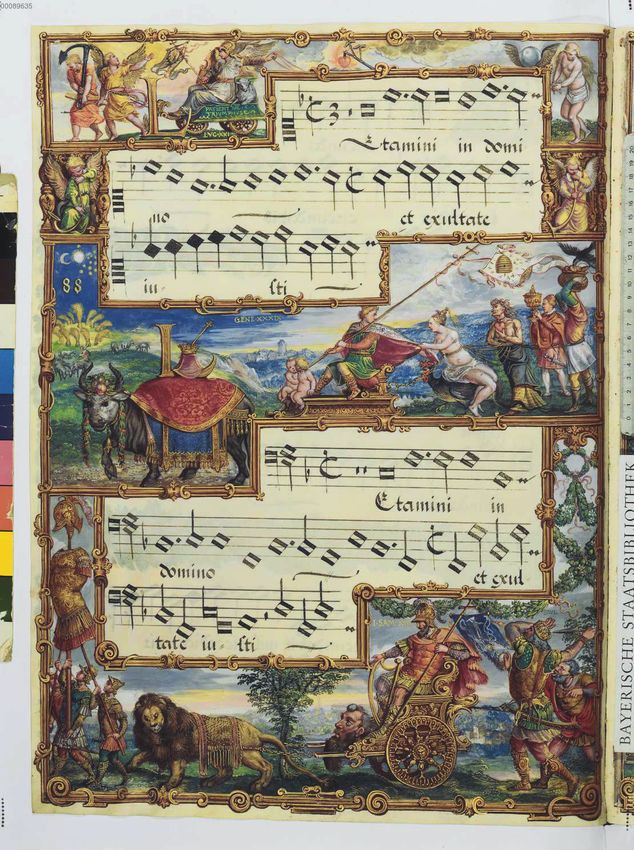 00089635
LVC·XXI
Etamini in domi
no et exultate
iu sti
88
GENE·XXXIX
Etamini in
domino et exul
tate iu sti
I·SAM·
BAYERISCHE STAATSBIBLIOTHEK